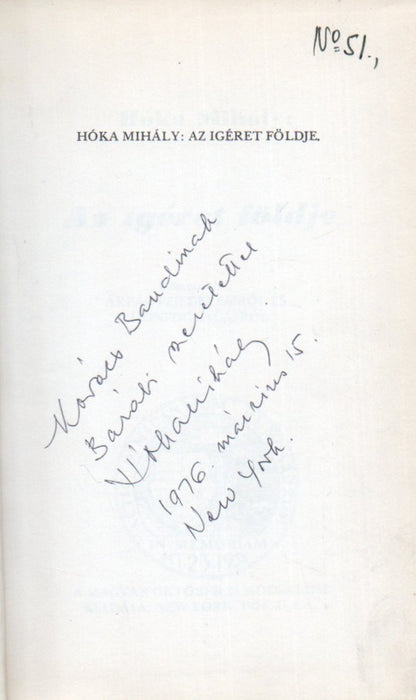 Nº 51.,
HÓKA MIHÁLY: AZ IGÉRET FÖLDJE.
Kovács Bandinak
Baráti szeretettel
Hóka Mihály
1976. március 15.
New York.